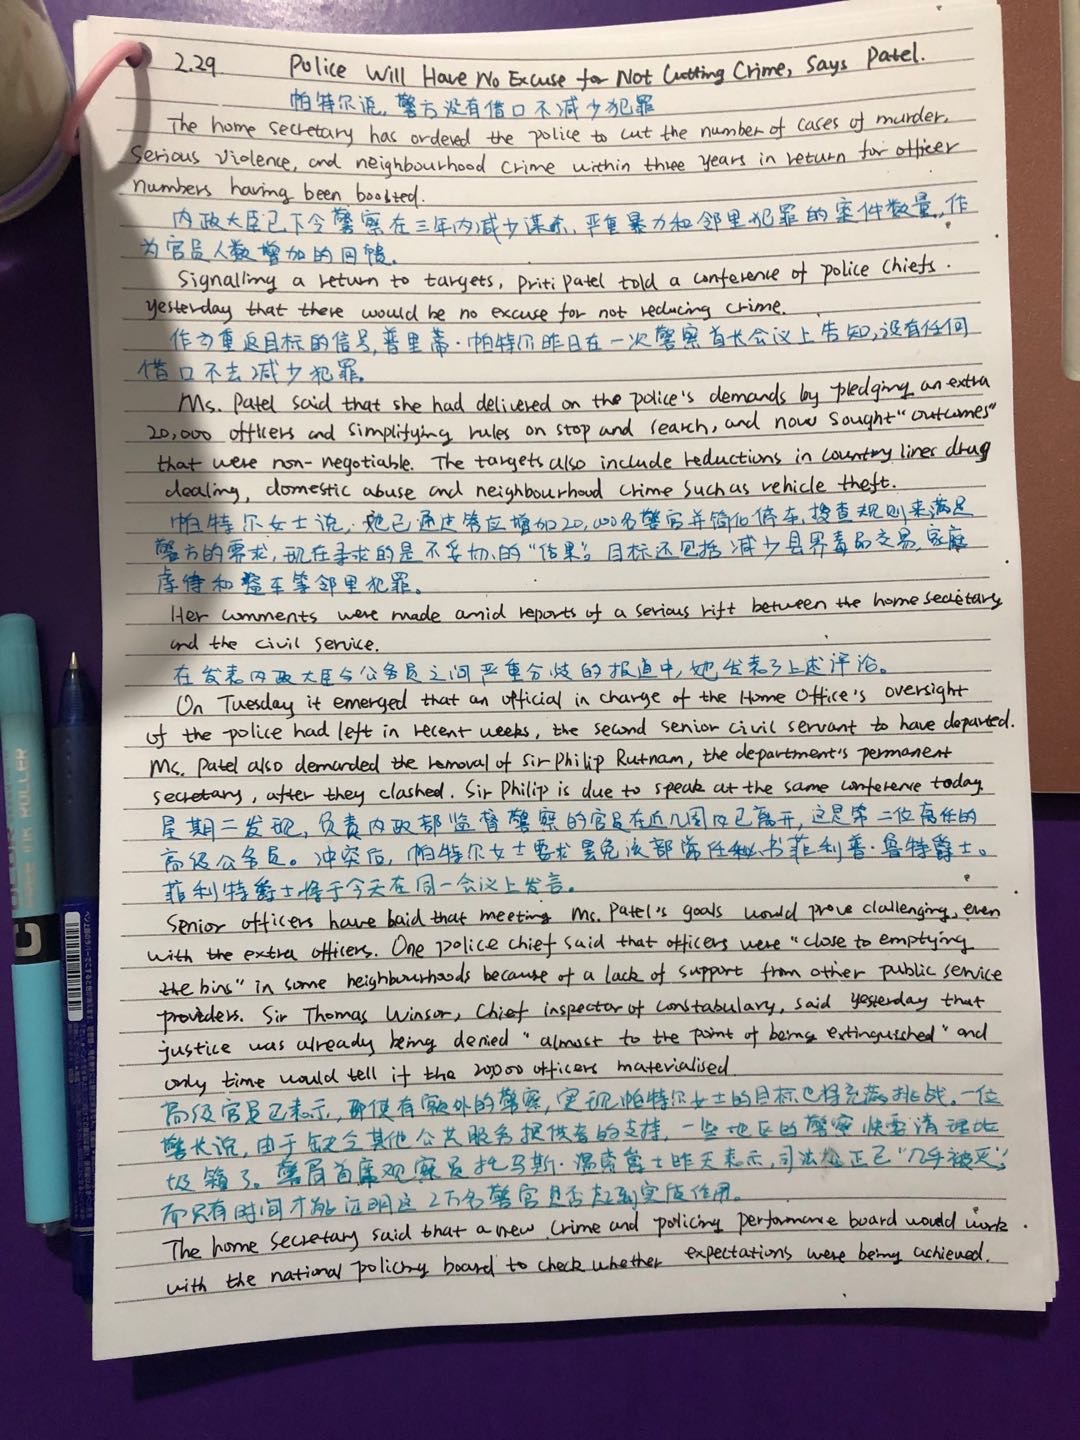 2.29. Police Will Have No Excuse for Not Cutting Crime, Says Patel.
帕特尔说,警方没有借口不减少犯罪
The home secretary has ordered the police to cut the number of cases of murder,
serious violence, and neighbourhood crime within three years in return for officer
numbers having been boosted.
内政大臣已下令警察在三年内减少谋杀、严重暴力和邻里犯罪的案件数量,作
为官员人数增加的回馈。
Signalling a return to targets, Priti Patel told a conference of police chiefs
yesterday that there would be no excuse for not reducing crime.
作为重返目标的信号,普里蒂·帕特尔昨日在一次警察首长会议上告知,没有任何
借口不去减少犯罪。
Ms. Patel said that she had delivered on the police's demands by pledging an extra
20,000 officers and simplifying rules on stop and search, and now sought "outcomes"
that were non-negotiable. The targets also include reductions in country lines drug
dealing, domestic abuse and neighbourhood crime such as vehicle theft.
帕特尔女士说,她已通过答应增加20,000名警官并简化停车、搜查规则来满足
警方的需求,现在寻求的是不妥协的"结果"。目标还包括减少县界毒品交易、家庭
虐待和盗车等邻里犯罪。
Her comments were made amid reports of a serious rift between the home secretary
and the civil service.
在发表内政大臣与公务员之间严重分歧的报道中,她发表了上述评论。
On Tuesday it emerged that an official in charge of the Home Office's oversight
of the police had left in recent weeks, the second senior civil servant to have departed.
Ms. Patel also demanded the removal of Sir Philip Rutnam, the department's permanent
secretary, after they clashed. Sir Philip is due to speak at the same conference today.
星期二发现,负责内政部监督警察的官员在近几周内已离开,这是第二位离任的
高级公务员。冲突后,帕特尔女士要求罢免该部常任秘书菲利普·鲁特爵士。
菲利特爵士将于今天在同一会议上发言。
Senior officers have baid that meeting Ms. Patel's goals would prove clallenging, even
with the extra officers. One police chief said that officers were "close to emptying
the bins" in some neighbourhoods because of a lack of support from other public service
providers. Sir Thomas Winsor, Chief inspector of constabulary, said yesterday that
justice was already being denied "almost to the point of being extinguished" and
only time would tell if the 20,000 officers materialised.
高级官员已表示,即使有额外的警察,实现帕特尔女士的目标也将充满挑战。一位
警长说,由于缺乏其他公共服务提供者的支持,一些地区的警察快要清理垃
圾箱了。警局首席观察员托马斯·温索爵士昨天表示,司法公正已"几乎被灭",
而只有时间才能证明这2万名警官是否起到实质作用。
The home secretary said that a new crime and policing performance board would work
with the national policing board to check whether expectations were being achieved.